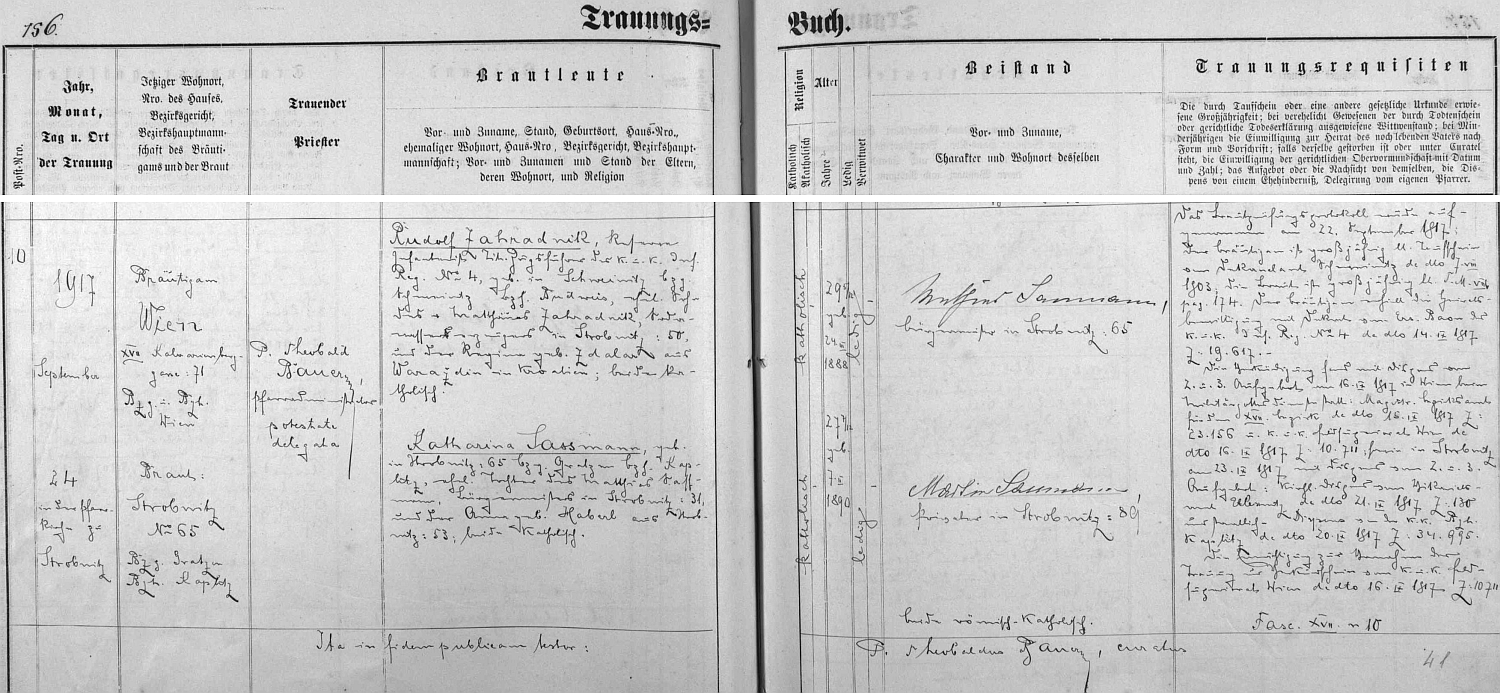 156.
Trauungs=
Buch.
Post-Nro.
Jahr,
Monat,
Tag u. Ort
der Trauung
Jetziger Wohnort,
Nro. des Hauses,
Bezirksgericht,
Bezirkshauptmann-
schaft des Bräuti-
gams und der Braut
Trauender
Priester
Brautleute
Vor- und Zuname, Stand, Geburtsort, Haus-Nro.,
ehemaliger Wohnort, Haus-Nro, Bezirksgericht, Bezirkshaupt-
mannschaft; Vor- und Zunamen und Stand der Eltern,
deren Wohnort, und Religion
Religion
Katholisch
Akatholisch
Alter
Jahre
Ledig
Verwitwet
Beistand
Vor- und Zuname,
Charakter und Wohnort desselben
Trauungsrequisiten
Die durch Taufschein oder eine andere gesetzliche Urkunde erwie-
sene Großjährigkeit; bei verehelicht Gewesenen der durch Todtenschein
oder gerichtliche Todeserklärung ausgewiesene Wittwenstand; bei Min-
derjährigen die Einwilligung zur Heirat des noch lebenden Vaters nach
Form und Vorschrift; falls derselbe gestorben ist oder unter Curatel
steht, die Einwilligung der gerichtlichen Obervormundschaft mit Datum
und Zahl; das Aufgebot oder die Nachsicht von demselben, die Dis-
pens von einem Ehehinderniß, Delegirung vom eigenen Pfarrer.
10
1917
September
24
in der Pfarr-
kirche zu
Strobnitz
Bräutigam
Wien
XVII
gasse: 71
Bzg. u. Bzh.
Wien
Braut:
Strobnitz
No 65
Bzg. Gratzen
Bzh. Kaplitz
P. Theobald
Bauer,
Pfarradministrator
potestate
delegata
Rudolf Zahradnik, Reserve
Infanterist, Titl. Zugsführer des k. u. k. Inf.
Reg. No 4, geb. in Schweinitz bzg
Schweinitz bzh. Budweis, ehel. Sohn
des Matthäus Zahradnik,
in Strobnitz: 50,
und der Regina geb. Zdalar aus
Warasdin in Kroatien; beide ka-
tholisch.
Katharina Sassmann, geb.
in Strobnitz: 65 bzg. Gratzen bzh. Kap-
litz, ehel. Tochter des Matthias Saß-
mann, Bürgermeisters in Strobnitz: 31,
und der Anna geb. Haberl aus Strob-
nitz: 53; beide katholisch.
katholisch
geb.
1888
ledig
katholisch
geb.
1890
ledig
Mathias Sassmann,
Bürgermeister in Strobnitz: 65
Martin Sassmann,
Privatier in Strobnitz: 89
beide römisch-katholisch.
Das Brautprüfungsprotokoll wurde auf-
genommen am 22. September 1917;
Der Bräutigam ist großjährig lt. Taufschein
vom Dekanalamt Schweinitz de dto
1903; die Braut ist großjährig lt.
pag. 174. Der Bräutigam erhielt die Heirats-
bewilligung
k. u. k. Inf. Reg. No 4 de dto 14. IX 1917
Z. 19.617.
Die Verkündigung fand mit Dispens vom
2. u. 3. Aufgebote am 16. IX 1917 in Wien
für den XVII. Bezirk de dto 18. IX 1917 Z:
23.156 u. k. u. k. Feldsuperiorat Wien de
dto 16. IX 1917 Z. 10.711, ferner in Strobnitz
am 23. IX 1917 mit Dispens vom 2. u. 3.
Aufgebot: kirchl. Dispens vom Vikariats-
amt de dto 21. IX 1917 Z. 130
und staatlich. Dispens von der k. k. Bzh.
Kaplitz de dto 20. IX 1917 Z: 34.995.
Die Ermächtigung zur Vornahme der
Trauung
superiorat Wien de dto 16. IX 1917 Z: 10711
Fasc. XVII. n 10
Ita in fidem publicam testor:
P. Theobaldus Bauer, curatus
41